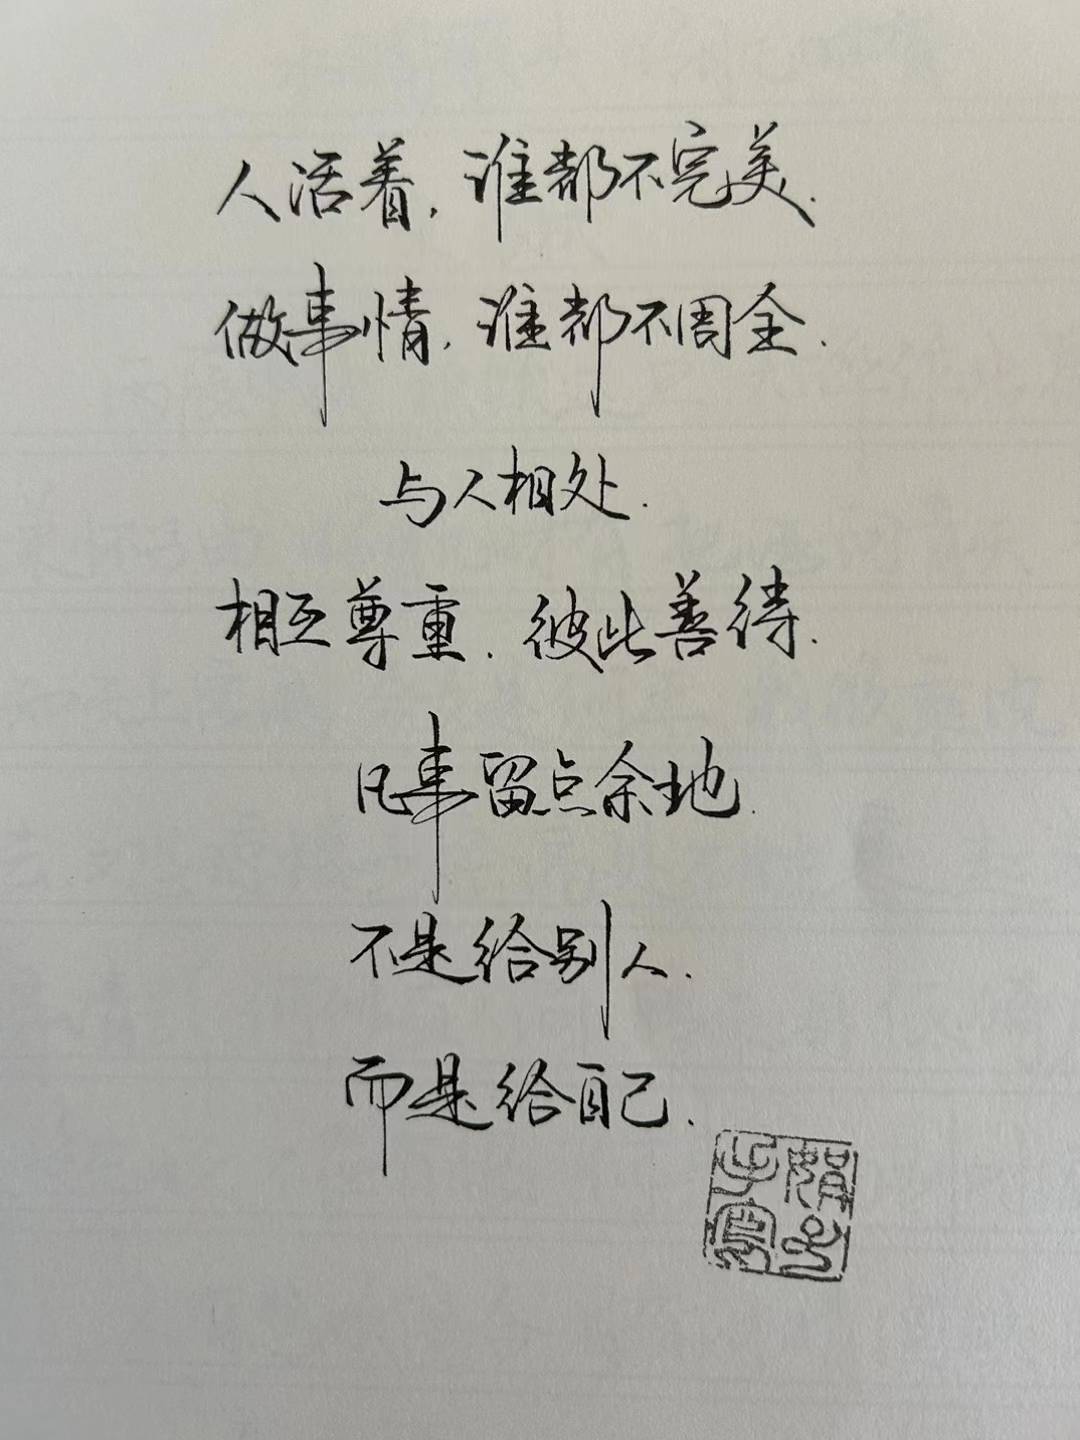 人活着，谁都不完美.
做事情，谁都不周全.
与人相处.
相互尊重.彼此善待.
凡事留点余地.
不是给别人.
而是给自己.
娟子
手写